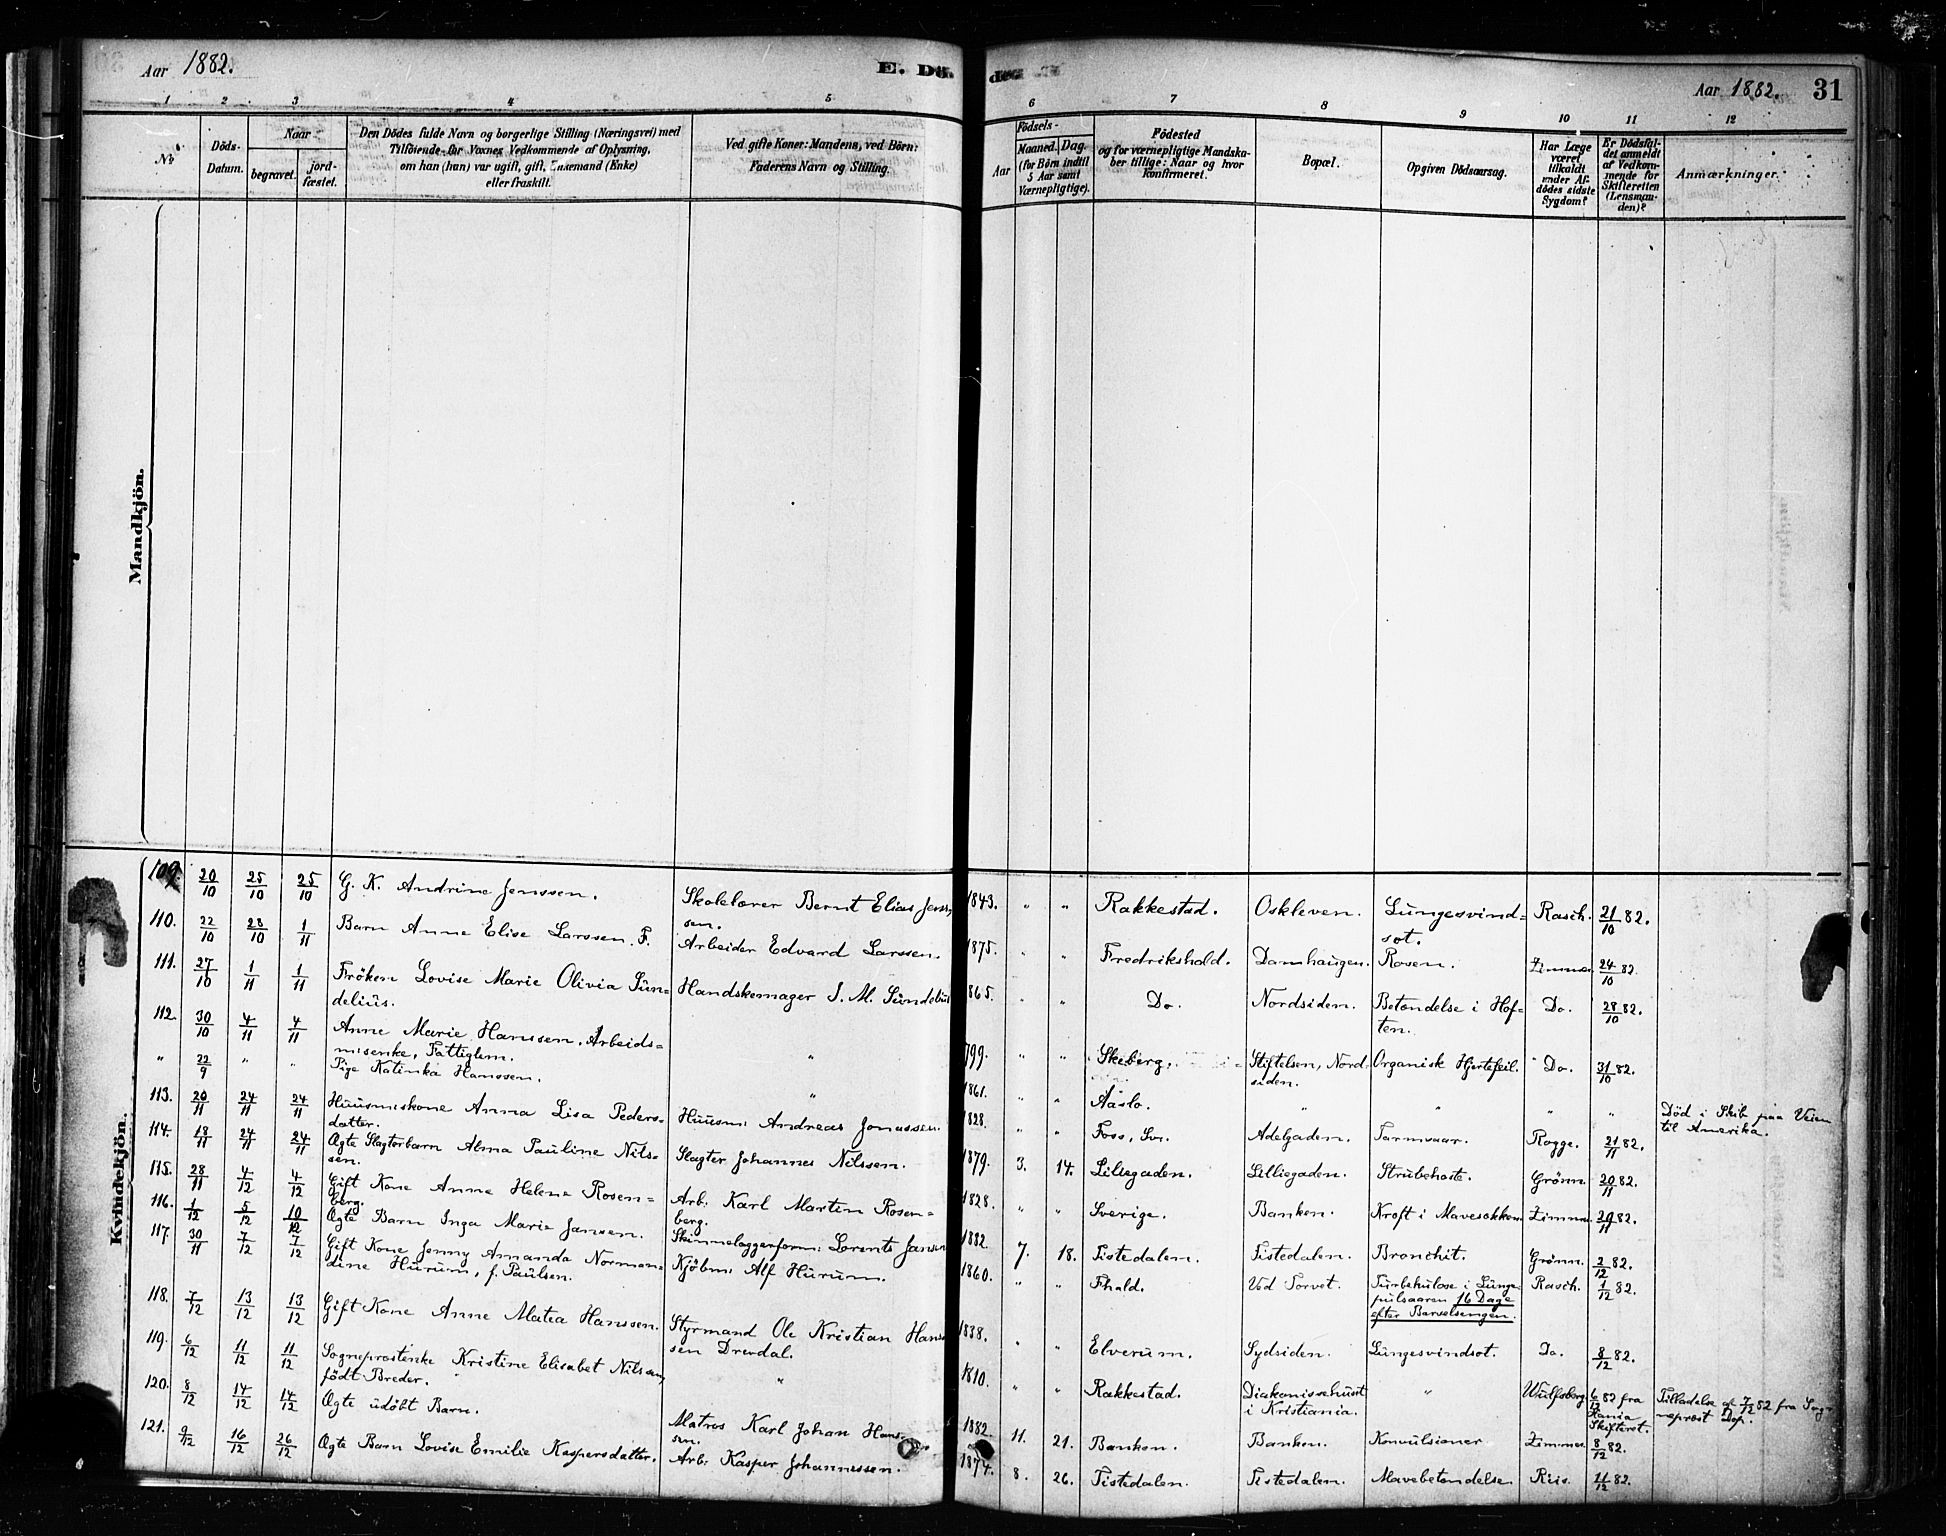 Aar 1882.
E. Dö.
döde.
Aar 1882.
31
1 2 3 4 5 6 7 8 9 10 11 12
No
Döds-Datum.
Naar
begravet.
jord-fæstet.
Den Dödes fulde Navn og borgerlige Stilling (Næringsvei) med
Tilföiende for Voxnes Vedkommende af Oplysning,
om han (hun) var ugift, gift, Enkemand (Enke)
eller fraskilt.
Ved gifte Koner: Mandens, ved Börn:
Faderens Navn og Stilling.
Födsels-
Aar
Maaned. Dag.
(for Börn indtil
5 Aar samt
Værnepligtige).
Födested
og for værnepligtige Mandska-
ber tillige: Naar og hvor
konfirmeret.
Bopæl.
Opgiven Dödsaarsag.
Har Læge
været
tilkaldt
under Af-
dödes sidste
Sygdom?
Er Dödsfal-
det anmeldt
af Vedkom-
mende for
Skifteretten
(Lensman-
den)?
Anmærkninger.
Mandkjön.
Kvindekjön.
109. 20/10 25/10 25/10 G. K. Andrine Jenssen. Skolelærer Bernt Elias Jens-
sen. 1843. " " Rakkestad. Oskleven. Lungesvind-
sot. Rasch. 21/10 82.
110. 22/10 28/10 1/11 Barn Anne Elise Larssen. F. Arbeider Edvard Larssen. 1875. " " Fredrikshald. Damhaugen. Rosen. Zimmer. 24/10 82.
111. 27/10 1/11 1/11 Fröken Lovise Marie Olivia Sun-
delius. Handskemager S. M. Sundelius 865. " " Do. Nordsiden. Betændelse i Hof-
ten. Do. 28/10 82.
112. 30/10 4/11 4/11 Anne Marie Hanssen. Arbeids-
misenke, Fattiglem. " 799. " " Skeberg. Stiftelsen, Nord-
siden. Organisk Hjertefeil. Do. 31/10 82.
" 22/9 " " Pige Katinka Hanssen. " 1861. " " Aaslo. " " " " Död i Skib paa Veien
til Amerika.
113. 20/11 24/11 24/11 Huusmiskone Anna Lisa Peders-
datter. Huusm: Andreas Jonassen. 828. " " Foss, Sv. Adelgaden. Tarmsaar. Rogge. 21/11 82.
114. 18/11 24/11 24/11 Ægte Slagterbarn Alma Pauline Nils-
sen. Slagter Johannes Nilssen. 1879. 3. 14. Liliegaden. Lilliegaden. Strubehoste. Grönn. 20/11 82.
115. 28/11 4/12 4/12 Gift Kone Anne Helene Rosen-
berg. Arb. Karl Martin Rosen-
berg. 1828. " " Sverige. Banken. Kræft i Mavesækken Zimmer. 29/11 82.
116. 1/12 5/12 10/12 Ægte Barn Inga Marie Jansen. Lorents Jansen 1882. 7. 18. Tistedalen. Tistedalen. Bronchit. Grönn. 2/12 82.
117. 30/11 7/12 7/12 Gift Kone Jenny Amanda Norman-
dine Hurum, f. Paulsen. Kjöbm: Alf Hurum. 1860. " " Fhald. Ved Torvet. Turbekulose i Lunge-
pulsaaren 16 Dage
efter Barselsengen. Rasch. 2/12 82.
118. 7/12 13/12 13/12 Gift Kone Anne Matea Hanssen. Styrmand Ole Kristian Hans-
sen Drevdal. 1838. " " Elverum. Sydsiden. Lungesvindsot. Do. 8/12 82.
119. 6/12 11/12 11/12 Sogneprestenke Kristine Elisabet Nilssen,
födt Breder. " 1810. " " Rakkestad. Diakonissehuset
i Kristiania. " Wulfsberg. 6/12 82 fra
Kania
Skifteret. Tilladelse af 7/12 82 fra Sog-
neprest Dop.
120. 8/12 14/12 14/12 Ægte udöbt Barn. Matros Karl Johan Hans-
sen. 1882. 11. 21. Banken. Banken. Konvulsioner Zimmer. 8/12 82.
121. 9/12 16/12 26/12 Ægte Barn Lovise Emilie Kaspersdatter. Arb: Kasper Johannessen. 1874. 8. 26. Tistedalen. Tistedalen. Mavebetændelse Riis. 11/12 82.